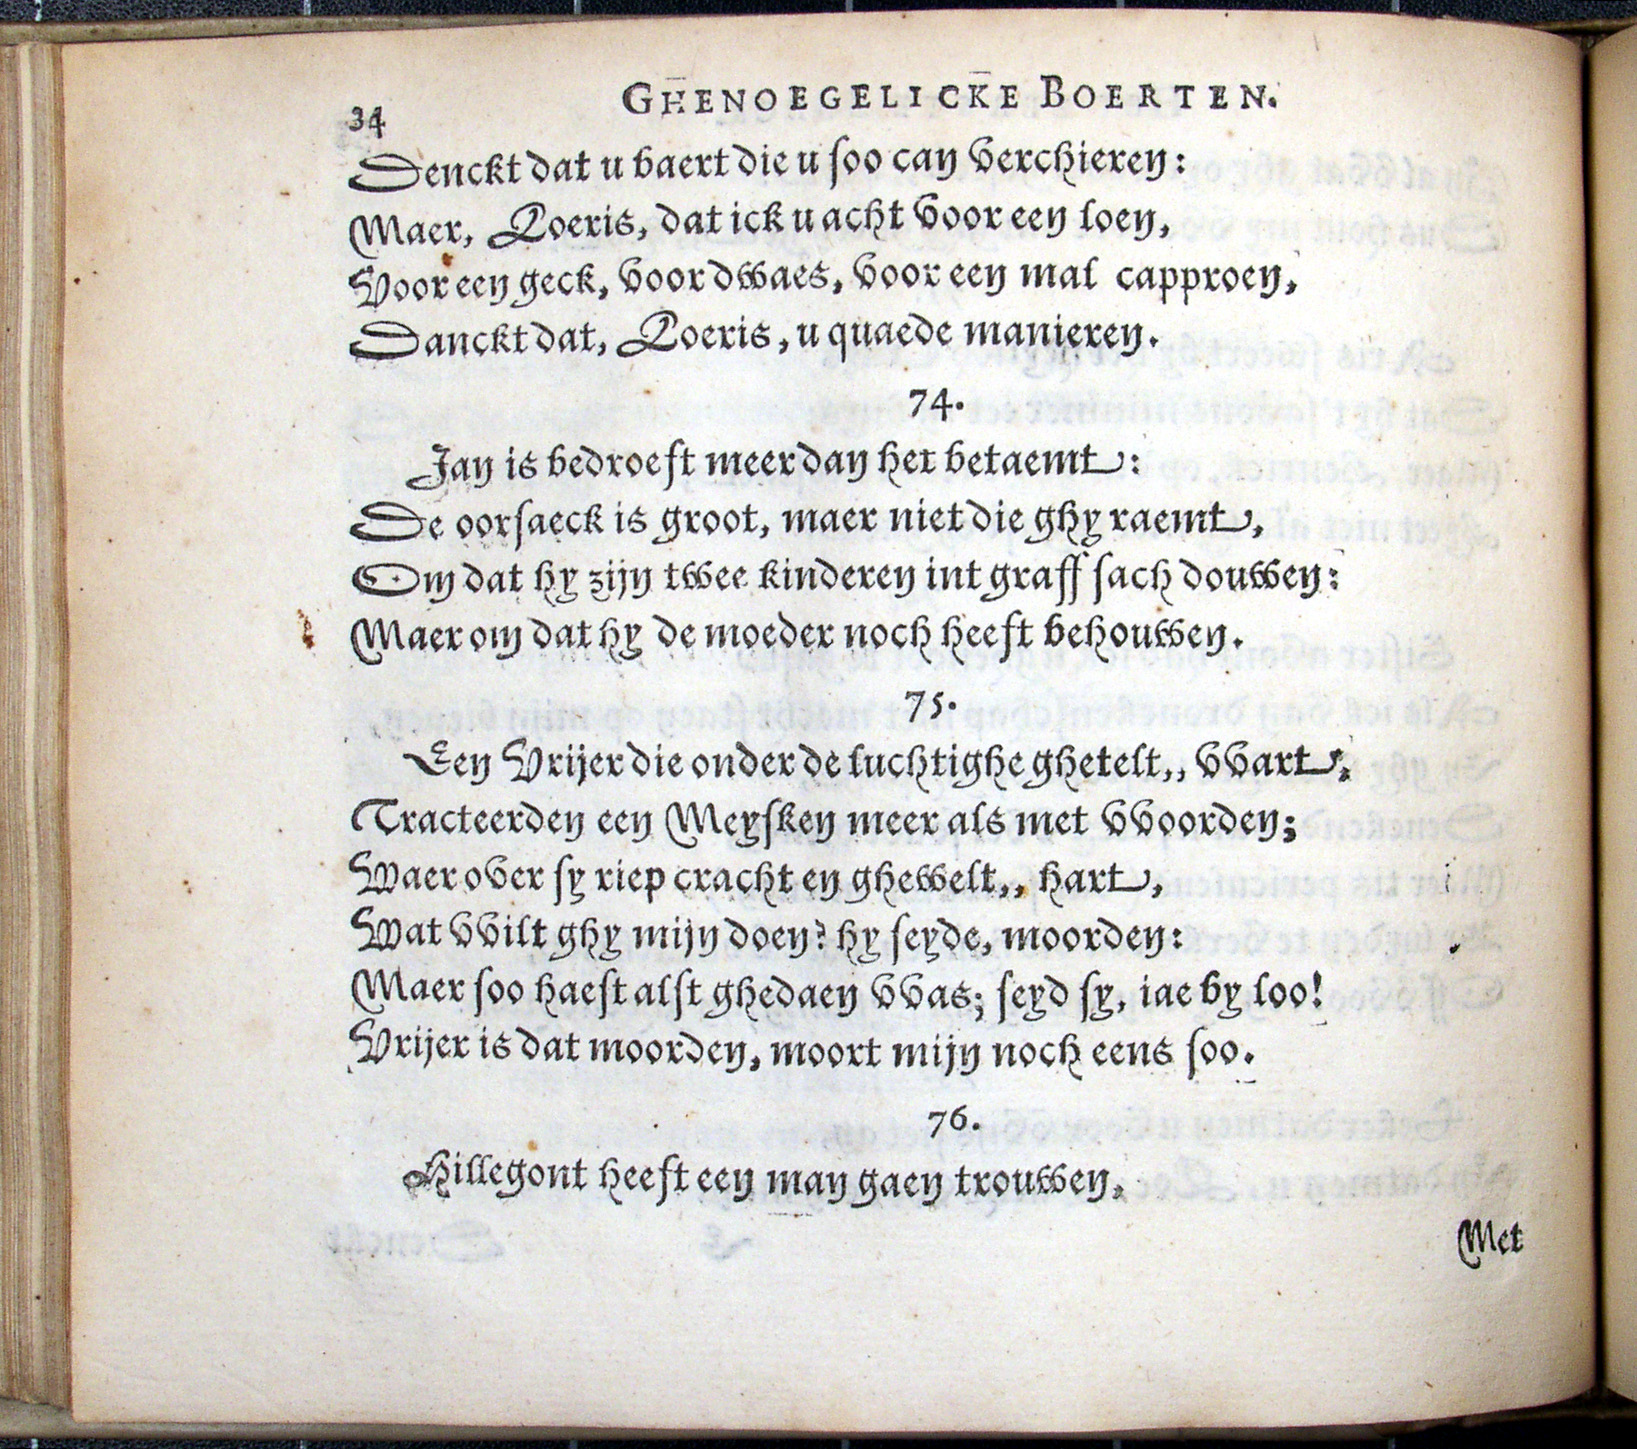 34
GHENOEGELICKE BOERTEN.
Denckt dat u baert die u soo can verchieren:
Maer, Loeris, dat ick u acht voor een loen,
Voor een geck, voor dwaes, voor een mal capproen,
Danckt dat, Loeris, u quaede manieren.
74.
Jan is bedroeft meer dan het betaemt:
De oorsaeck is groot, maer niet die ghy raemt,
Om dat hy zijn twee kinderen int graff sach douwen:
Maer om dat hy de moeder noch heeft behouwen.
75.
Een Vrijer die onder de luchtighe ghetelt,, vvart,
Tracteerden een Meysken meer als met vvoorden;
Waer over sy riep cracht en ghewelt,, hart,
Wat vvilt ghy mijn doen? hy seyde, moorden:
Maer soo haest alst ghedaen vvas; seyd sy, iae by loo!
Vrijer is dat moorden, moort mijn noch eens soo.
76.
Hillegont heeft een man gaen trouwen,
Met